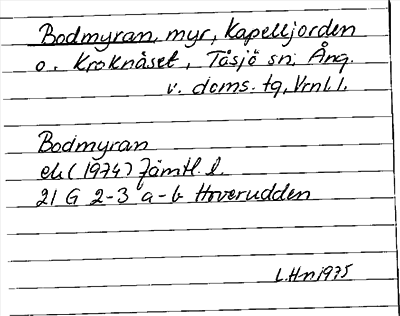 Bodmyran, myr, Kapelljorden
o. Kroknäset, Tåsjö sn, Ång.
v. doms. tg, Vrnl. l.
Bodmyran
ek (1974) Jämtl. l.
21 G 2-3 a-b Hoverudden
L.Hn 1975